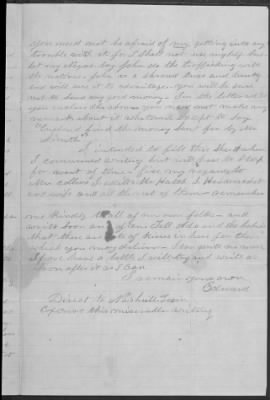 You need not be afraid of my getting into any
trouble with it for I shall not use myself
let my Negro boy John do the trafficking with
the natives. John is a shrewd and
and will use it to advantage. You will be sure
not to send any good money. In the letter
you enclose the above you need not make any
remark about it whatever except to say
"Enclosed find the money sent for by Mr
Smith"
I intended to fill this sheet when
I commenced writing but will have to stop
for want of time. Give my regards to
Mr Collins
and wife and all the rest of them. Remember
me kindly to all of our own folks and
write soon and often. Tell Ada and the babies
that there are lots of kisses in here for them
which you may deliver. I can write no more
If we have a battle I will try and write as
soon after it as I can
I remain your own
Edward
Direct to Nashville Tenn
Excuse this miserable writing